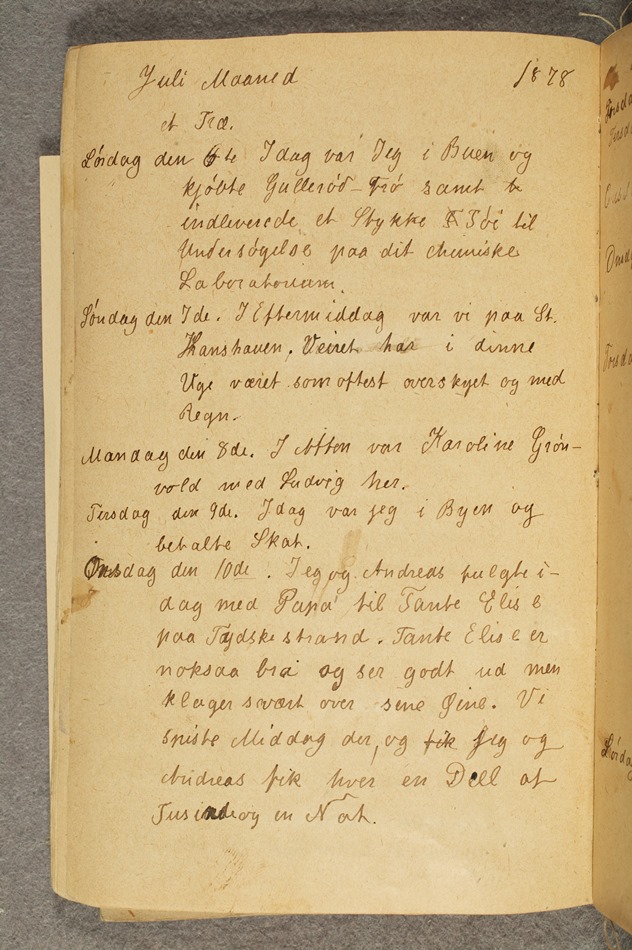 Juli Maaned 1878
et Træ.
Lørdag den 6te Idag var Jeg i Buen og
kjøbte Gullerød-Frø samt
indleverede et Stykke Tøi til
Undersøgelse paa dit chemiske
Laboratorium.
Søndag den 7de. I Eftermiddag var vi paa St.
Hanshauen. Veiret har i dinne
Uge været som oftest overskyet og med
Regn.
Mandag den 8de. I Afton var Karoline Grøn-
vold med Ludvig her.
Tirsdag den 9de. Idag var jeg i Byen og
betalte Skat.
Onsdag den 10de. Jeg og Andreas fulgte i-
dag med Papa til Tante Elise
paa Tydskestrand. Tante Elise er
noksaa bra og ser godt ud men
klager svært over sene Øine. Vi
spiste Middag der, og fik Jeg og
Andreas fik hver en Dell af
Tusindeog en Nat.
Tirsda
Onsd
Torsda
Lørda